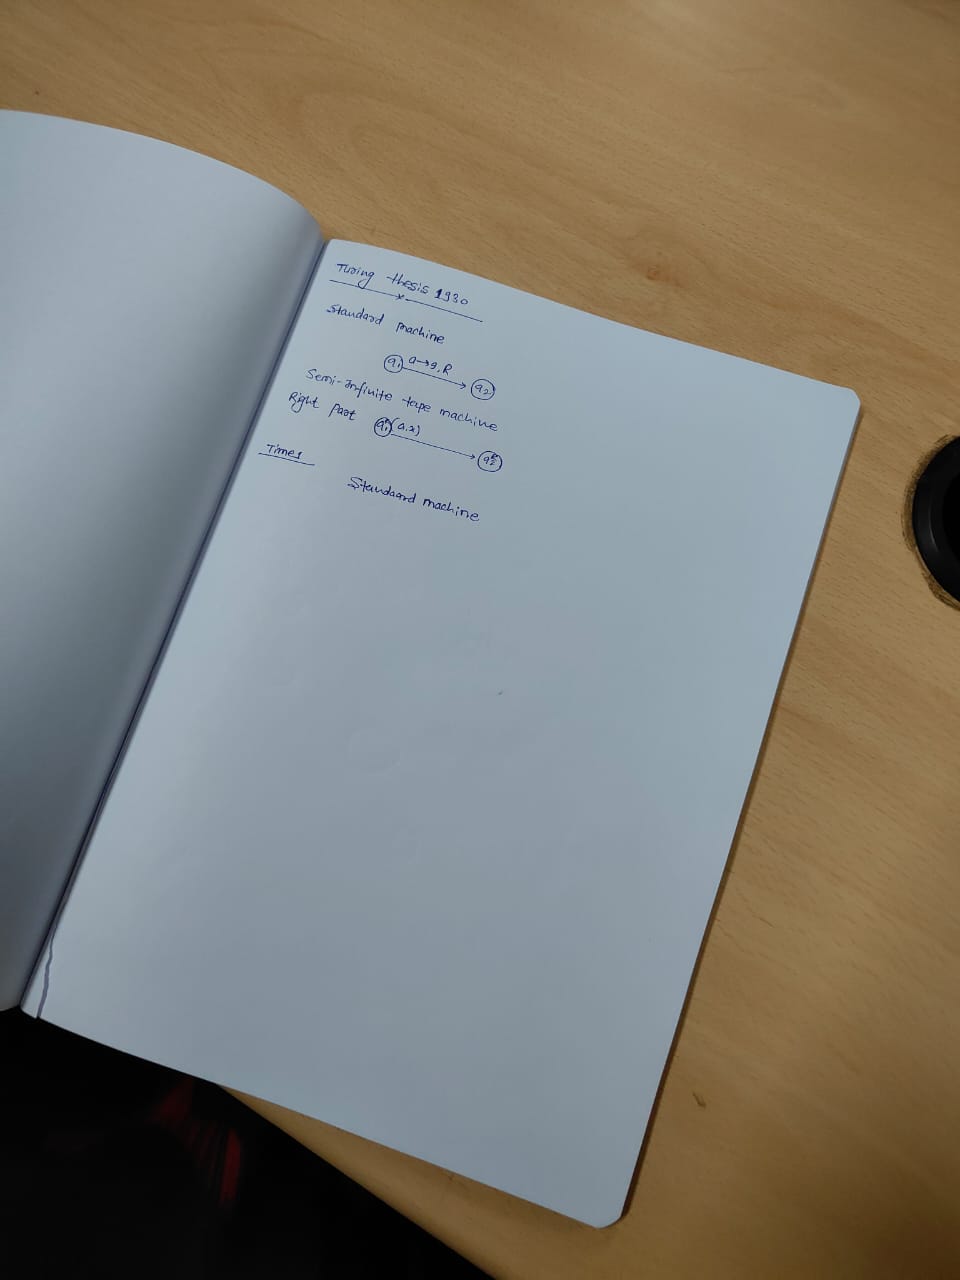 Turing thesis 1930
Standard machine
q1 a→g,R q2
Semi-Infinite tape machine
Right Part q1R (a,x) q2R
Time 1
Standaard machine